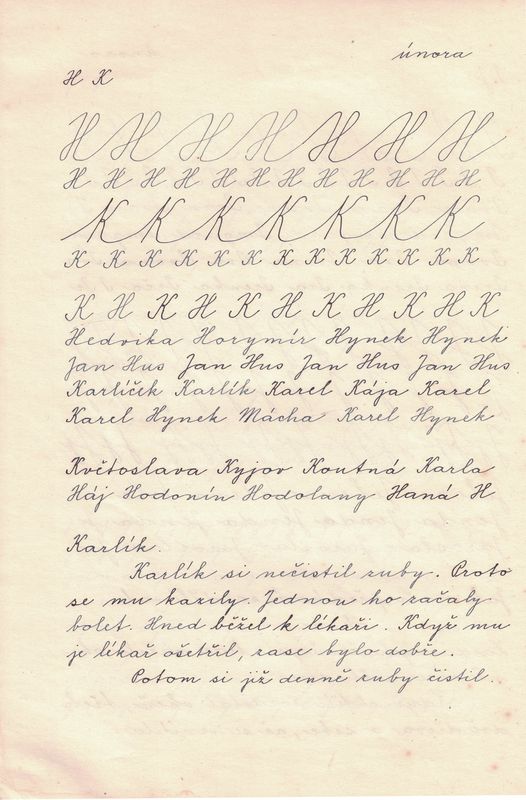 února
H K
H H H H H H H
H H H H H H H H H H H H
K K K K K K K
K K K K K K K K K K K K
K H K H K H K H K H K
Hedvika Horymír Hynek Hynek
Jan Hus Jan Hus Jan Hus Jan Hus
Karlíček Karlík Karel Kája Karel
Karel Hynek Mácha Karel Hynek
Květoslava Kyjov Koutná Karla
Háj Hodonín Hodolany Haná H
Karlík.
Karlík si nečistil zuby. Proto
se mu kazily. Jednou ho začaly
bolet. Hned běžel k lékaři. Když mu
je lékař ošetřil, zase bylo dobře.
Potom si již denně zuby čistil.